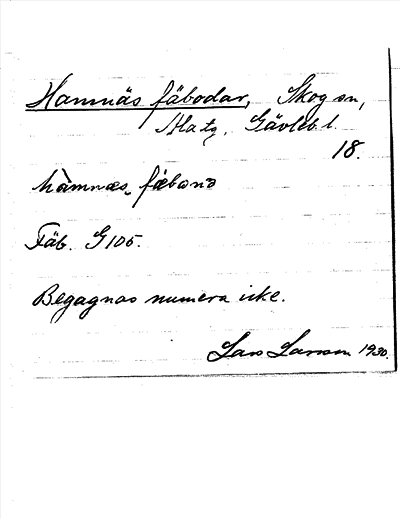 Hamnäs fäbodar, Skog sn,
Ala tg, Gävleb. l.
18.
hàmnæs fæbωnɔ
Fäb. G105.
Begagnas numera icke.
Lars Larsson 1930.